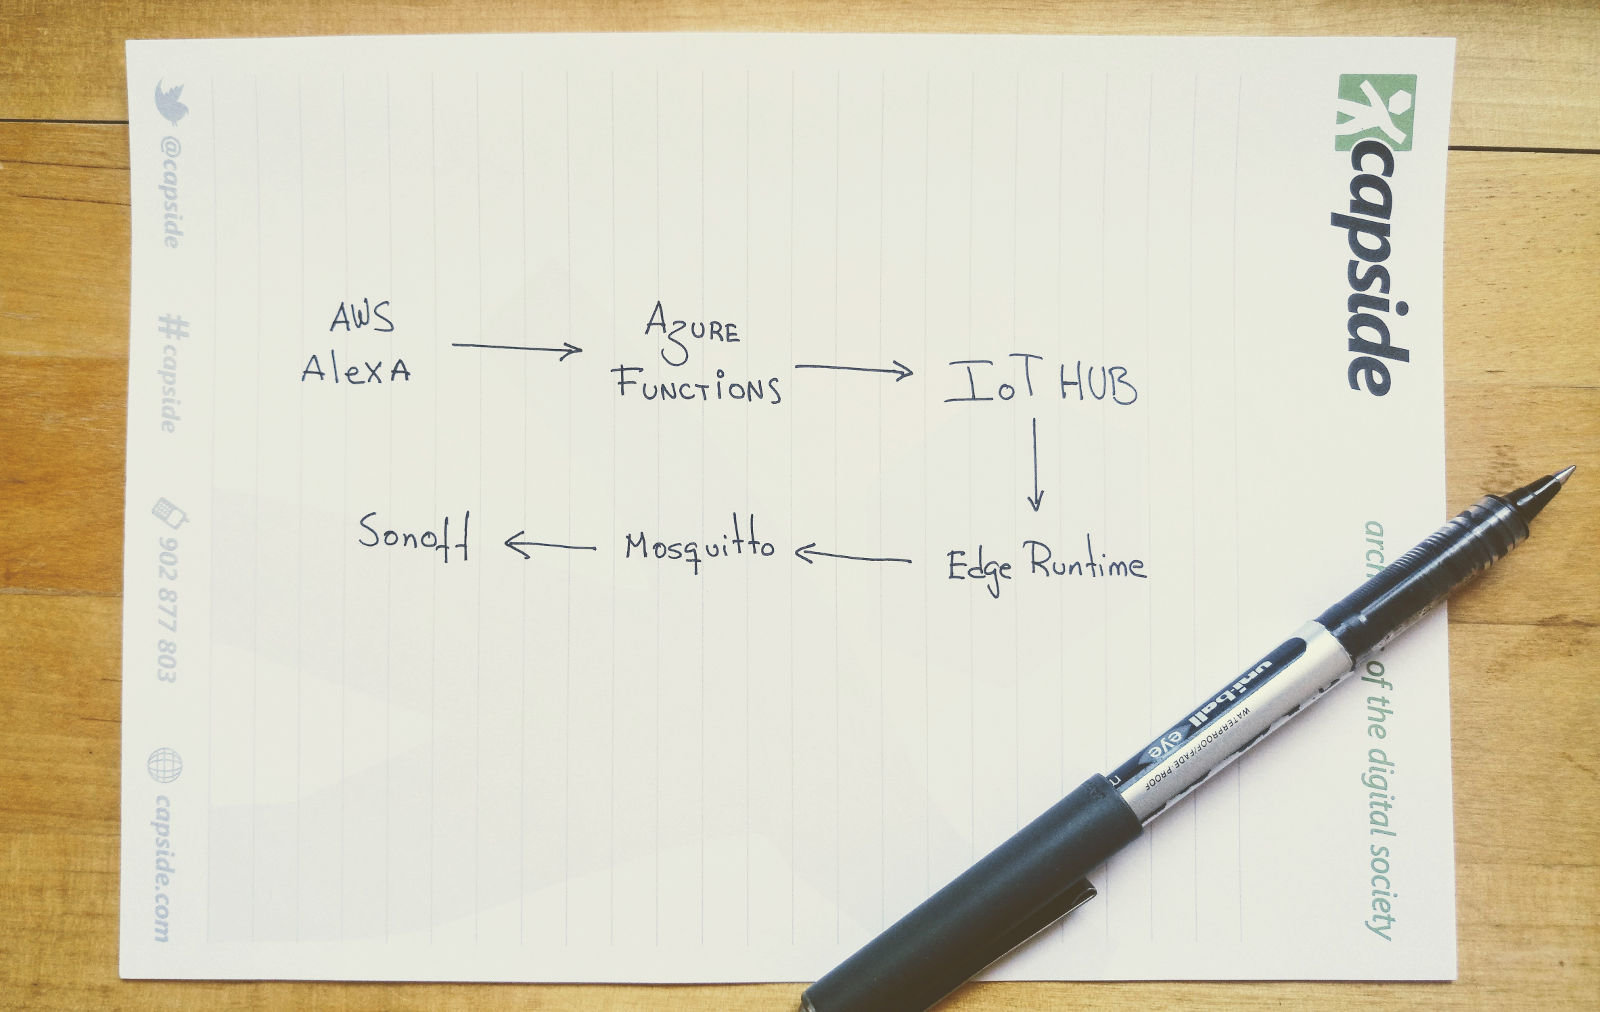 AWS
AlexA
AzURE
FUNCTiONS
IoT HUB
Edge Runtime
Mosquitto
Sonoff
@capside
#capside
902 877 803
capside.com
capside
of the digital society
uni-ball eye
WATERPROOF/FADE-PROOF